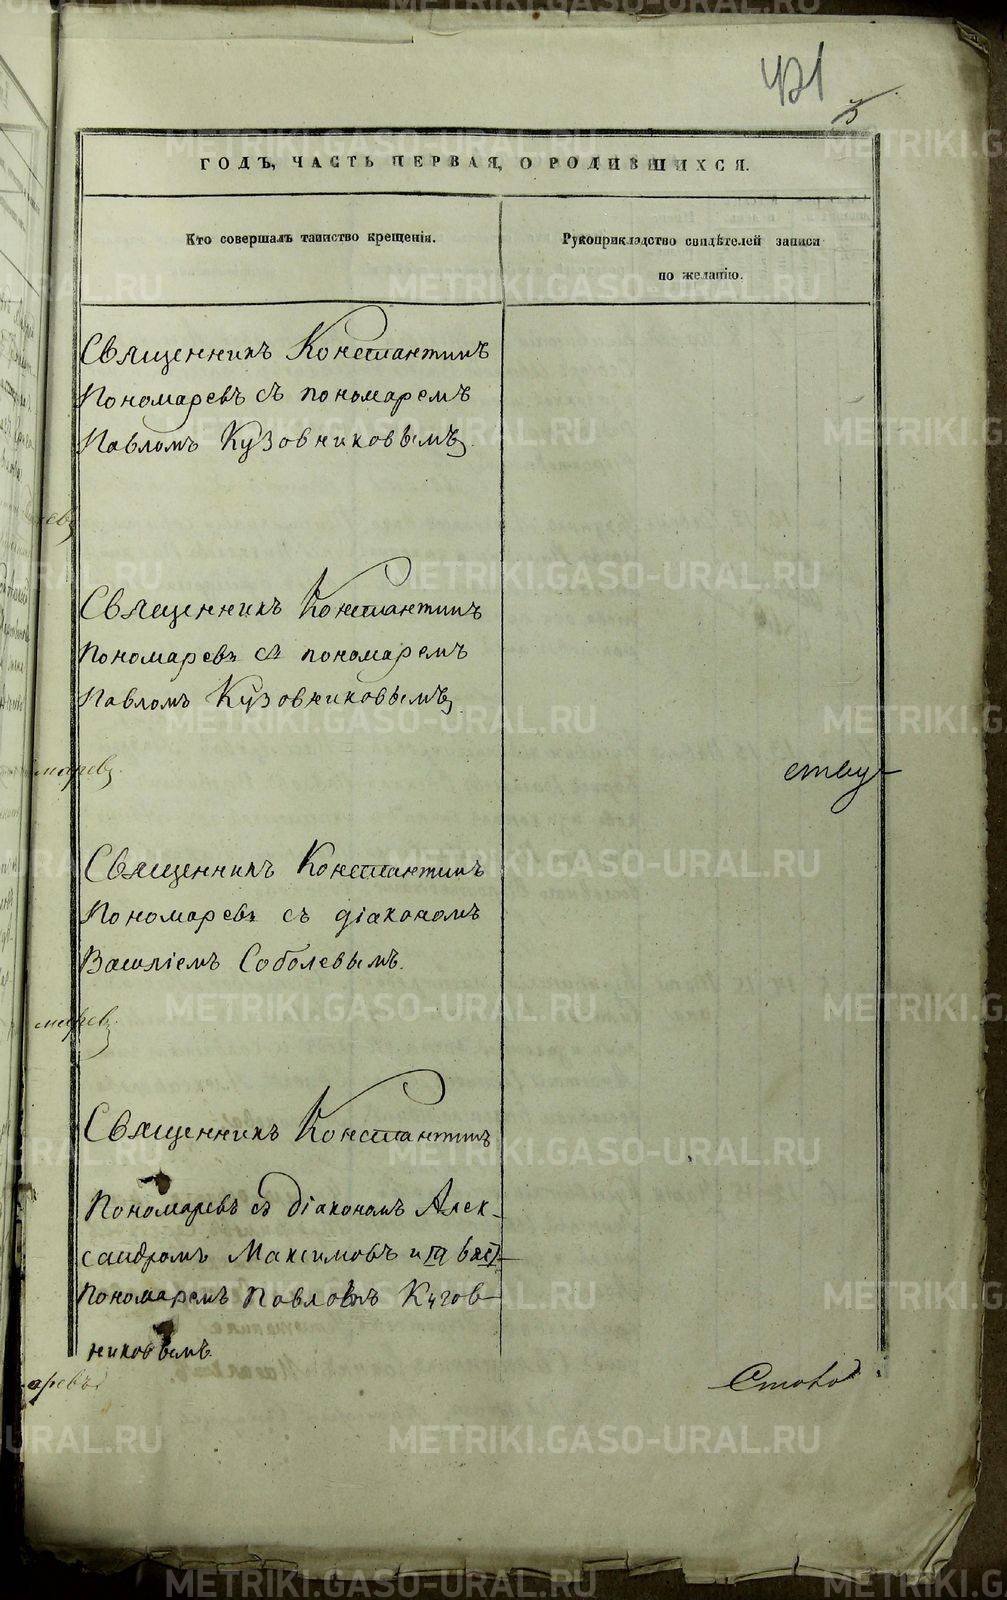 421
5
ГОДЪ, ЧАСТЬ ПЕРВАЯ, О РОДИВШИХСЯ.
Кто совершалъ таинство крещенія.
Рукоприкладство свидѣтелей записи
по желанію.
Священникъ Константинъ
Пономаревъ съ пономаремъ
Павломъ Кузовниковымъ.
Священникъ Константинъ
Пономаревъ съ пономаремъ
Павломъ Кузовниковымъ.
маревъ.
ству
Священникъ Константинъ
Пономаревъ съ діакономъ
Василіемъ Соболевымъ.
маревъ.
Священникъ Константинъ
Пономаревъ съ діакономъ Алек-
сандромъ Максимовъ и
Пономаремъ Павломъ Кузов-
никовымъ.
аревъ
METRIKI.GASO-URAL.RU